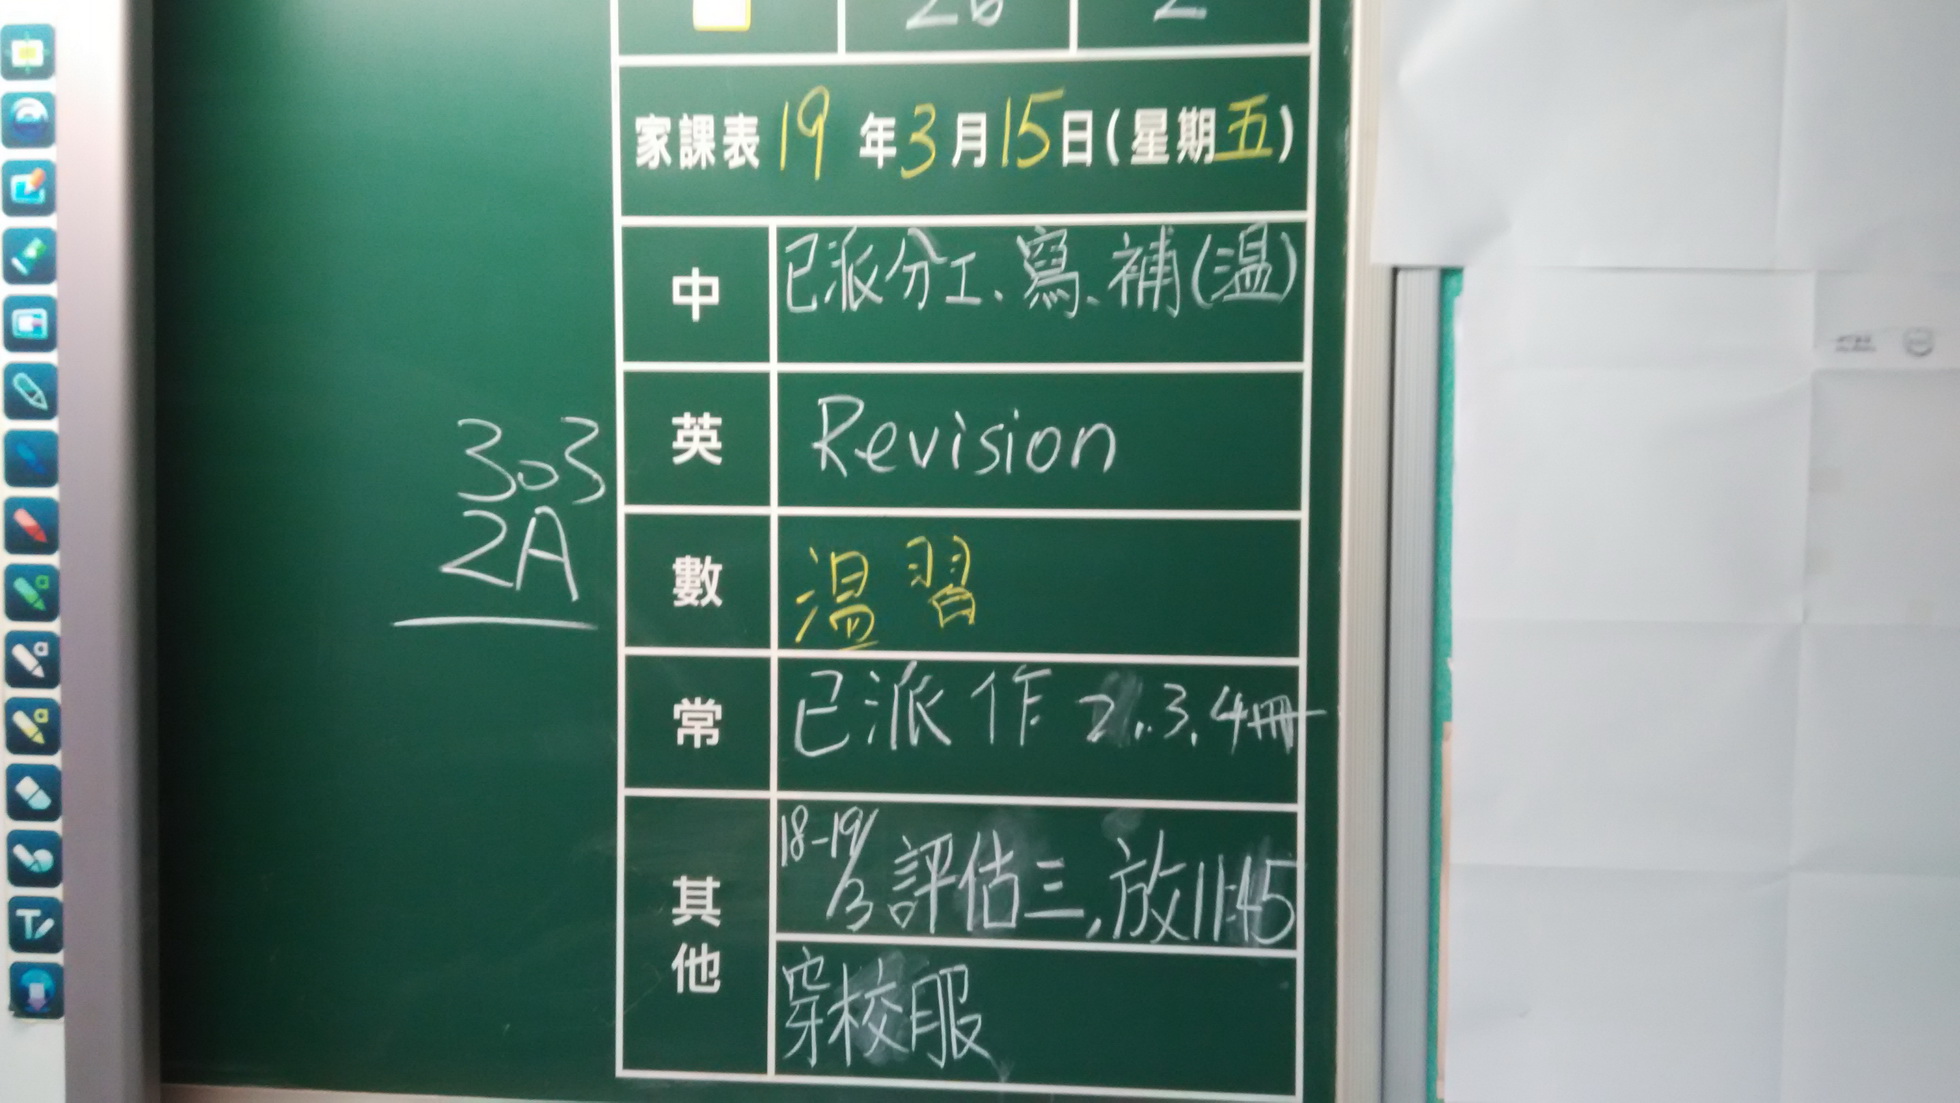 26 2
家課表 19 年 3 月 15 日 (星期五)
中 已派分工、寫、補(溫)
英 Revision
303
2A
數 溫習
常 已派作 2..3.4冊
其他 18-19/3 評估三,放11:45
穿校服